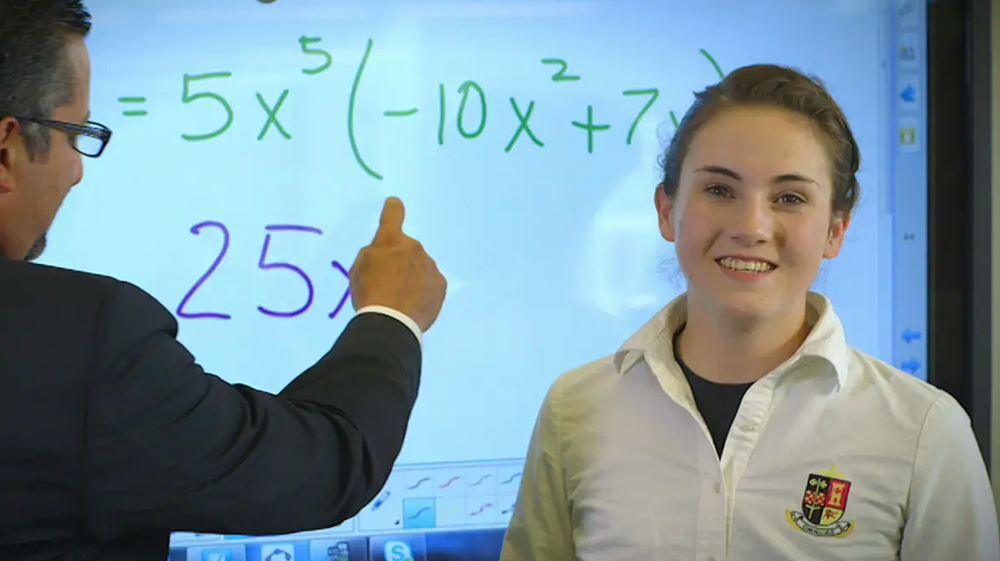 = 5x⁵(-10x² + 7
25x